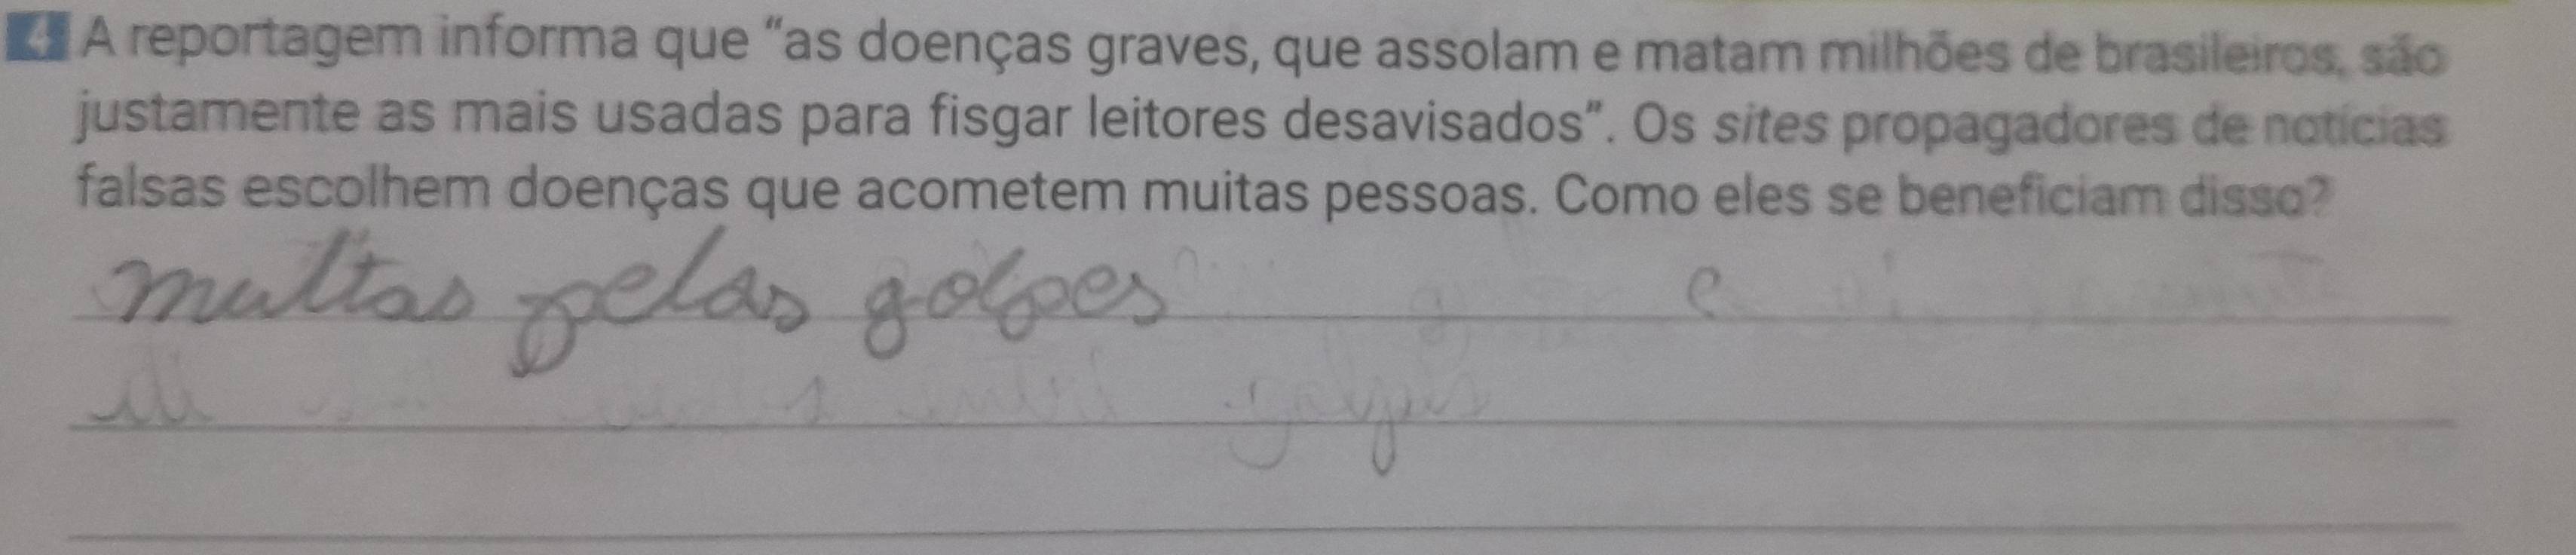 4 A reportagem informa que “as doenças graves, que assolam e matam milhões de brasileiros, são
justamente as mais usadas para fisgar leitores desavisados”. Os sites propagadores de notícias
falsas escolhem doenças que acometem muitas pessoas. Como eles se beneficiam disso?
multas pelas golpes